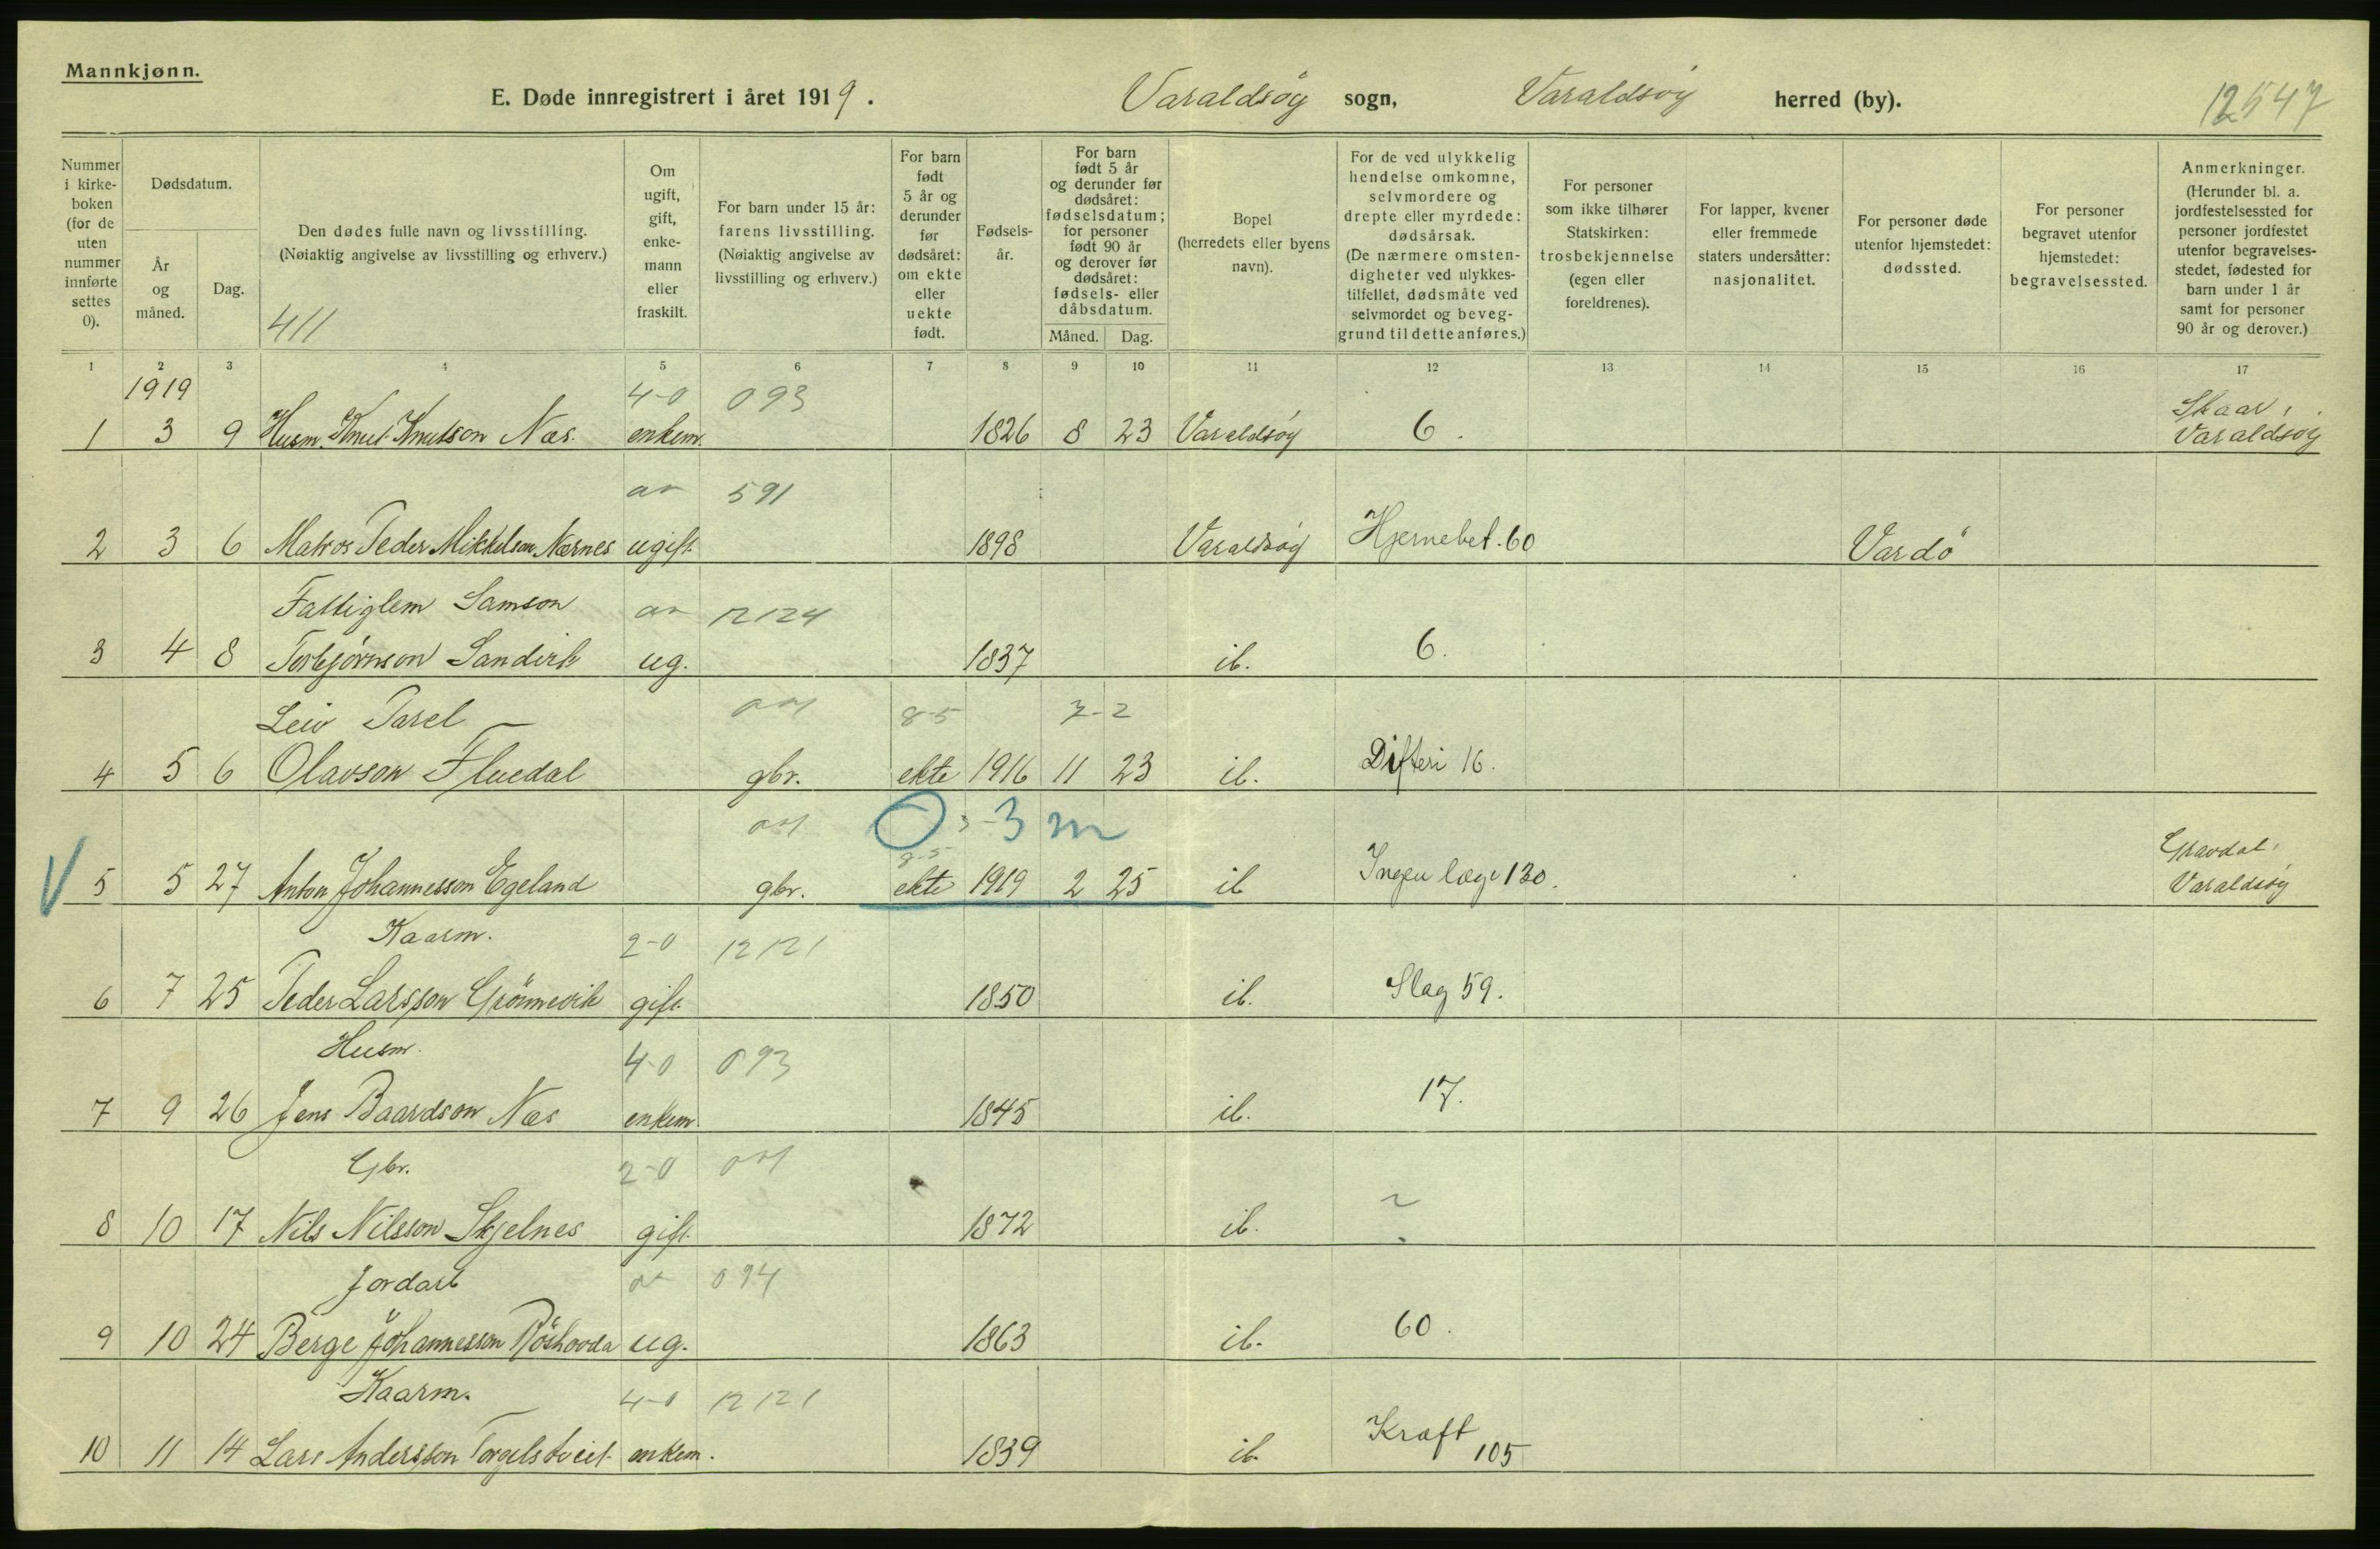 Mannkjønn.
E. Døde innregistrert i året 1919. Varaldsöy sogn, Varaldsöy herred (by). 12547
Nummer i kirkeboken (for de uten nummer innførte settes 0).
Dødsdatum.
År og måned.
Dag.
Den dødes fulle navn og livsstilling.
(Nøiaktig angivelse av livsstilling og erhverv.)
411
Om ugift, gift, enkemann eller fraskilt.
For barn under 15 år: farens livsstilling. (Nøiaktig angivelse av livsstilling og erhverv.)
For barn født 5 år og derunder før dødsåret: om ekte eller uekte født.
Fødselsår.
For barn født 5 år og derunder før dødsåret: fødselsdatum; for personer født 90 år og derover før dødsåret: fødsels- eller dåbsdatum.
Måned. Dag.
Bopel (herredets eller byens navn).
For de ved ulykkelig hendelse omkomne, selvmordere og drepte eller myrdede: dødsårsak. (De nærmere omstendigheter ved ulykkestilfellet, dødsmåte ved selvmordet og beveggrund til dette anføres.)
For personer som ikke tilhører Statskirken: trosbekjennelse (egen eller foreldrenes).
For lapper, kvener eller fremmede staters undersåtter: nasjonalitet.
For personer døde utenfor hjemstedet: dødssted.
For personer begravet utenfor hjemstedet: begravelsessted.
Anmerkninger. (Herunder bl. a. jordfestelsessted for personer jordfestet utenfor begravelsesstedet, fødested for barn under 1 år samt for personer 90 år og derover.)
1 2 3 4 5 6 7 8 9 10 11 12 13 14 15 16 17
1919 4-0 093 Skaar,
1 3 9 Husm. Knut Knutson Næs. enkem. 1826 8 23 Varaldsöy 6. Varaldsöy
591
2 3 6 Matros Peder Mikkelson Nernes ugift 1898 Varaldsöy Hjernebet. 60 Vardö
Fattiglem Samson 12124
3 4 8 Torbjörnson Sandvik ug. 1837 ib. 6.
Leiv Parel 8-5 7-2
4 5 6 Olavson Fluedal gbr. ekte 1916 11 23 ib. Difteri 16.
0 3 - 3 m
8-5 Gravdal,
V 5 5 27 Anton Johannesson Egeland gbr. ekte 1919 2 25 ib Ingen læge 130. Varaldsöy
Kaarm. 2-0 12121
6 7 25 Peder Larsson Grönnevik gift 1850 ib. Slag 59.
Husm. 4-0 093
7 9 26 Jens Baardson Næs enkem. 1845 ib. 17.
Gbr. 2-0
8 10 17 Nils Nilsson Skjelnes gift. 1872 ib. ?
Jordarb 094
9 10 24 Berge Johannesson ug. 1863 ib. 60.
Kaarm. 4-0 12121
10 11 14 Lars Andersson Torgelstveit enkem. 1839 ib. Kræft 105